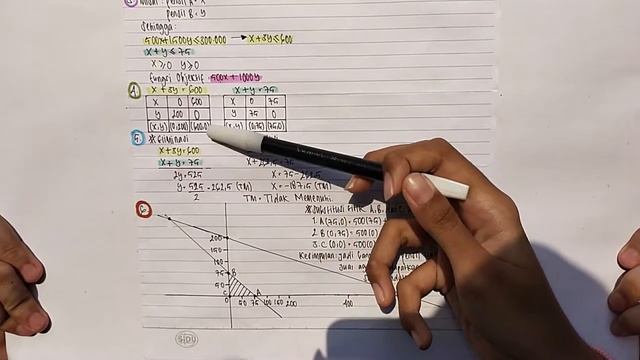 3. Misal : pensil A = X
pensil B = Y
Sehingga :
500x + 1500y ≤ 300.000 → x + 3y ≤ 600
x + y ≤ 75
x ≥ 0 y ≥ 0
fungsi objektif : 500x + 1000y
x + 3y = 600 x + y = 75
X 0 600 X 0 75
y 200 0 y 75 0
(x,y) (0,200) (600,0) (x,y) (0,75) (75,0)
5. * Eliminasi
x + 3y = 600
x + y = 75
2y = 525 x = 75 - 262,5
y = 525 = 262,5 (TM) x = -187,5 (TM)
2 TM = Tidak Memenuhi.
6. * Substitusi titik A, B,
1. A (75,0) = 500 (75) +
2. B (0,75) = 500 (0)
3. C (0,0) = 500 (0)
Kesimpulan : jadi
200
150
100
75 B
50
C A
0 50 75 100 150 200 400
SIDU